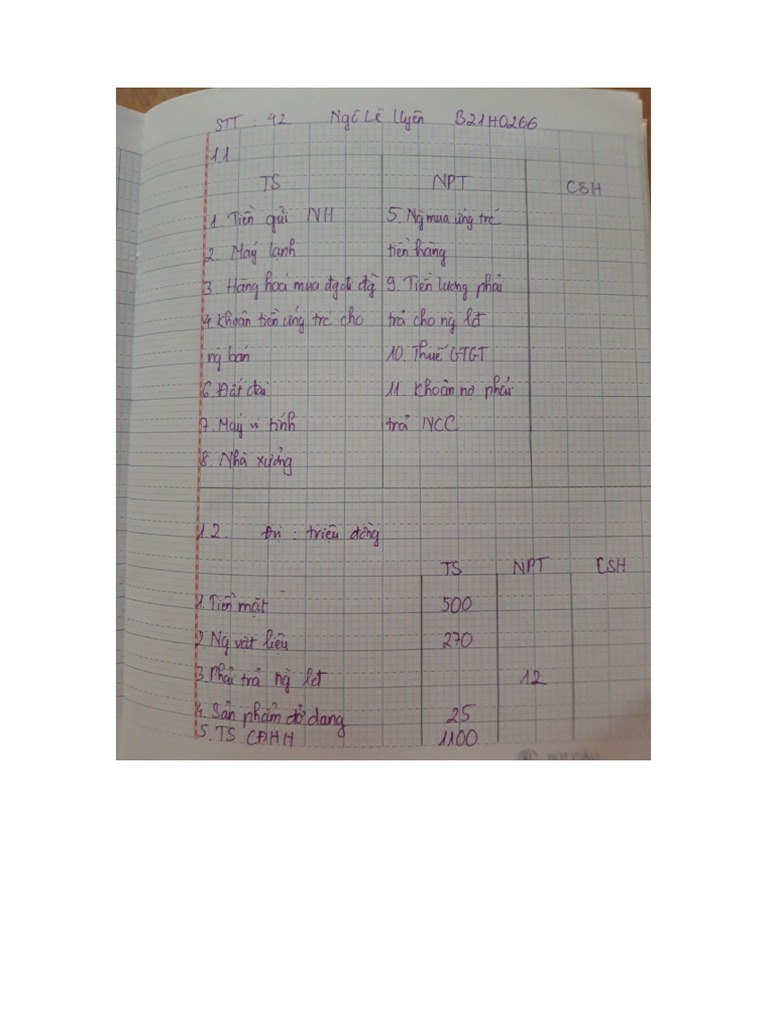 STT : 42 Ngô Lê Uyên B21H0266
1.1
TS NPT CSH
1. Tiền gửi NH 5. Ng mua ứng trc
2. Máy lạnh tiền hàng
3. Hàng hoá mua đg đi đg 9. Tiền lương phải
4. Khoản tiền ứng trc cho trả cho ng lđ
ng bán 10. Thuế GTGT
6. Đất đai 11. Khoản nợ phải
7. Máy vi tính trả NCC
8. Nhà xưởng
1.2. Đvị : triệu đồng
TS NPT CSH
1. Tiền mặt 500
2 Ng vật liệu 270
3 Phải trả ng lđ 12
4. Sản phẩm dở dang 25
5. TS CĐHH 1100